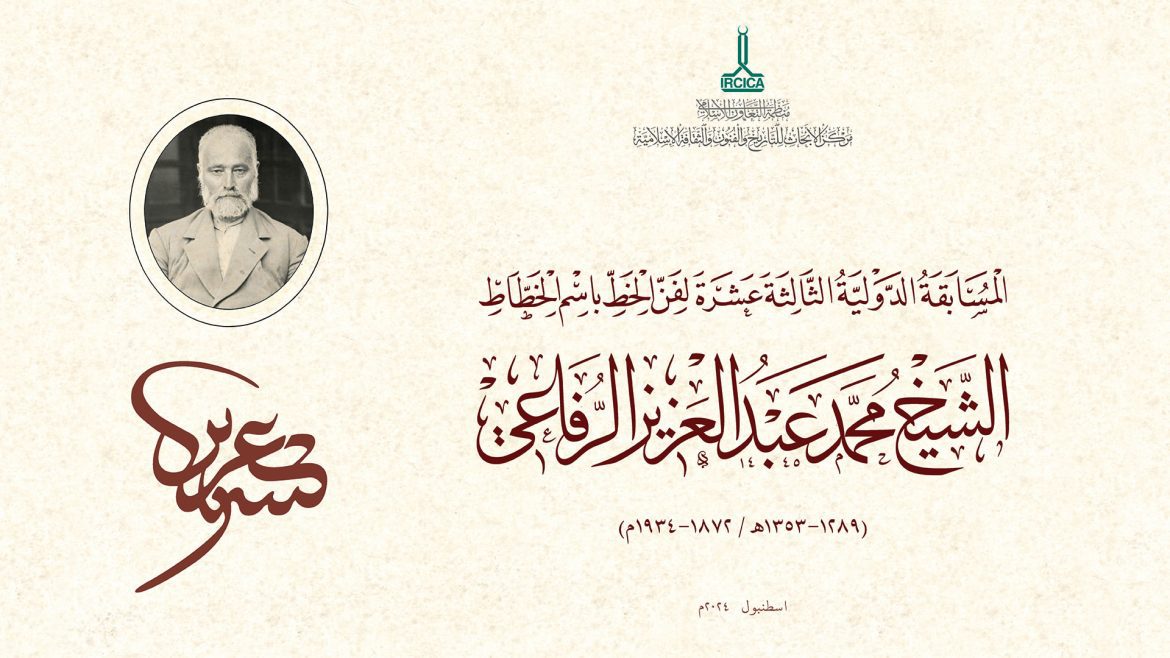 IRCICA
منظمة التعاون الإسلامي
مركز الأبحاث للتاريخ والفنون والثقافة الإسلامية
الْمُسَابَقَةُ الدَّوْلِيَّةُ الثَّالِثَةَ عَشْرَةَ لِفَنِّ الْخَطِّ بِاسْمِ الْخَطَّاطِ
الشَّيْخ مُحَمَّد عَبْدُ الْعَزِيز الرِّفَاعِي
١٤٤٥
(١٢٨٩-١٣٥٣هـ / ١٨٧٢-١٩٣٤م)
اسطنبول ٢٠٢٤م